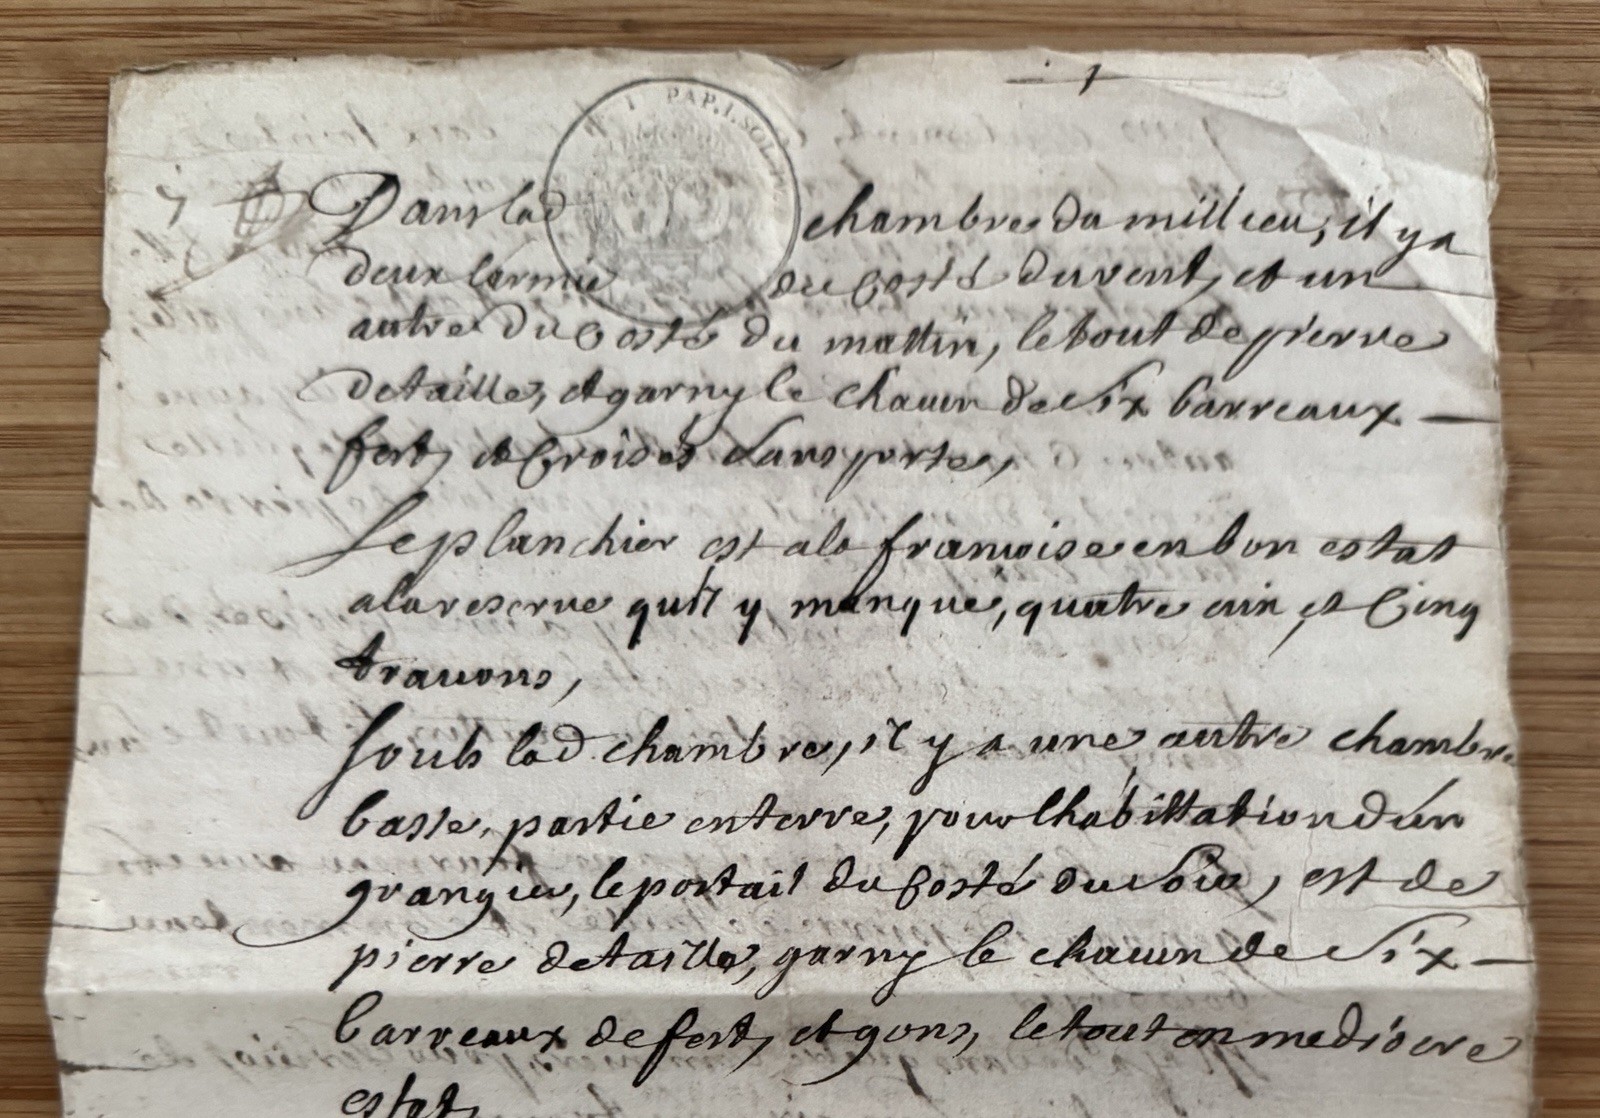 1
I PAP. I. SOL.
Dans lad chambre du millieu, il y a
deux larmie du costé du vent, et un
autre du costé du mattin, le tout de pierre
de taille, et garny le chacun de six barreaux
fert, et croisés sans porte,
Le planchier est a la francoise en bon estat
a la reserve qu'il y manque, quatre aix, et cinq
travons,
Soubs lad chambre, il y a une autre chambre
basse, partie enterre, pour lhabittation dún
grangier, le portail du costé du soir, est de
pierre de taille, garny le chacun de six
barreaux de fert, et gons, le tout en mediocre
estat,